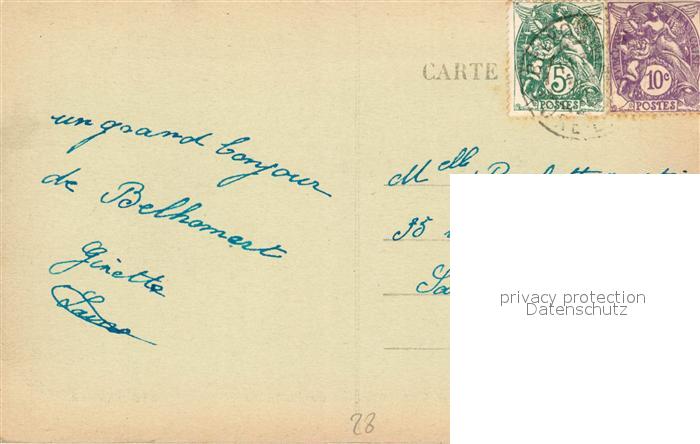 CARTE
5c
POSTES
10c
POSTES
un grand bonjour
de Belhomert
Ginette
Melle
35
privacy protection
Datenschutz
28